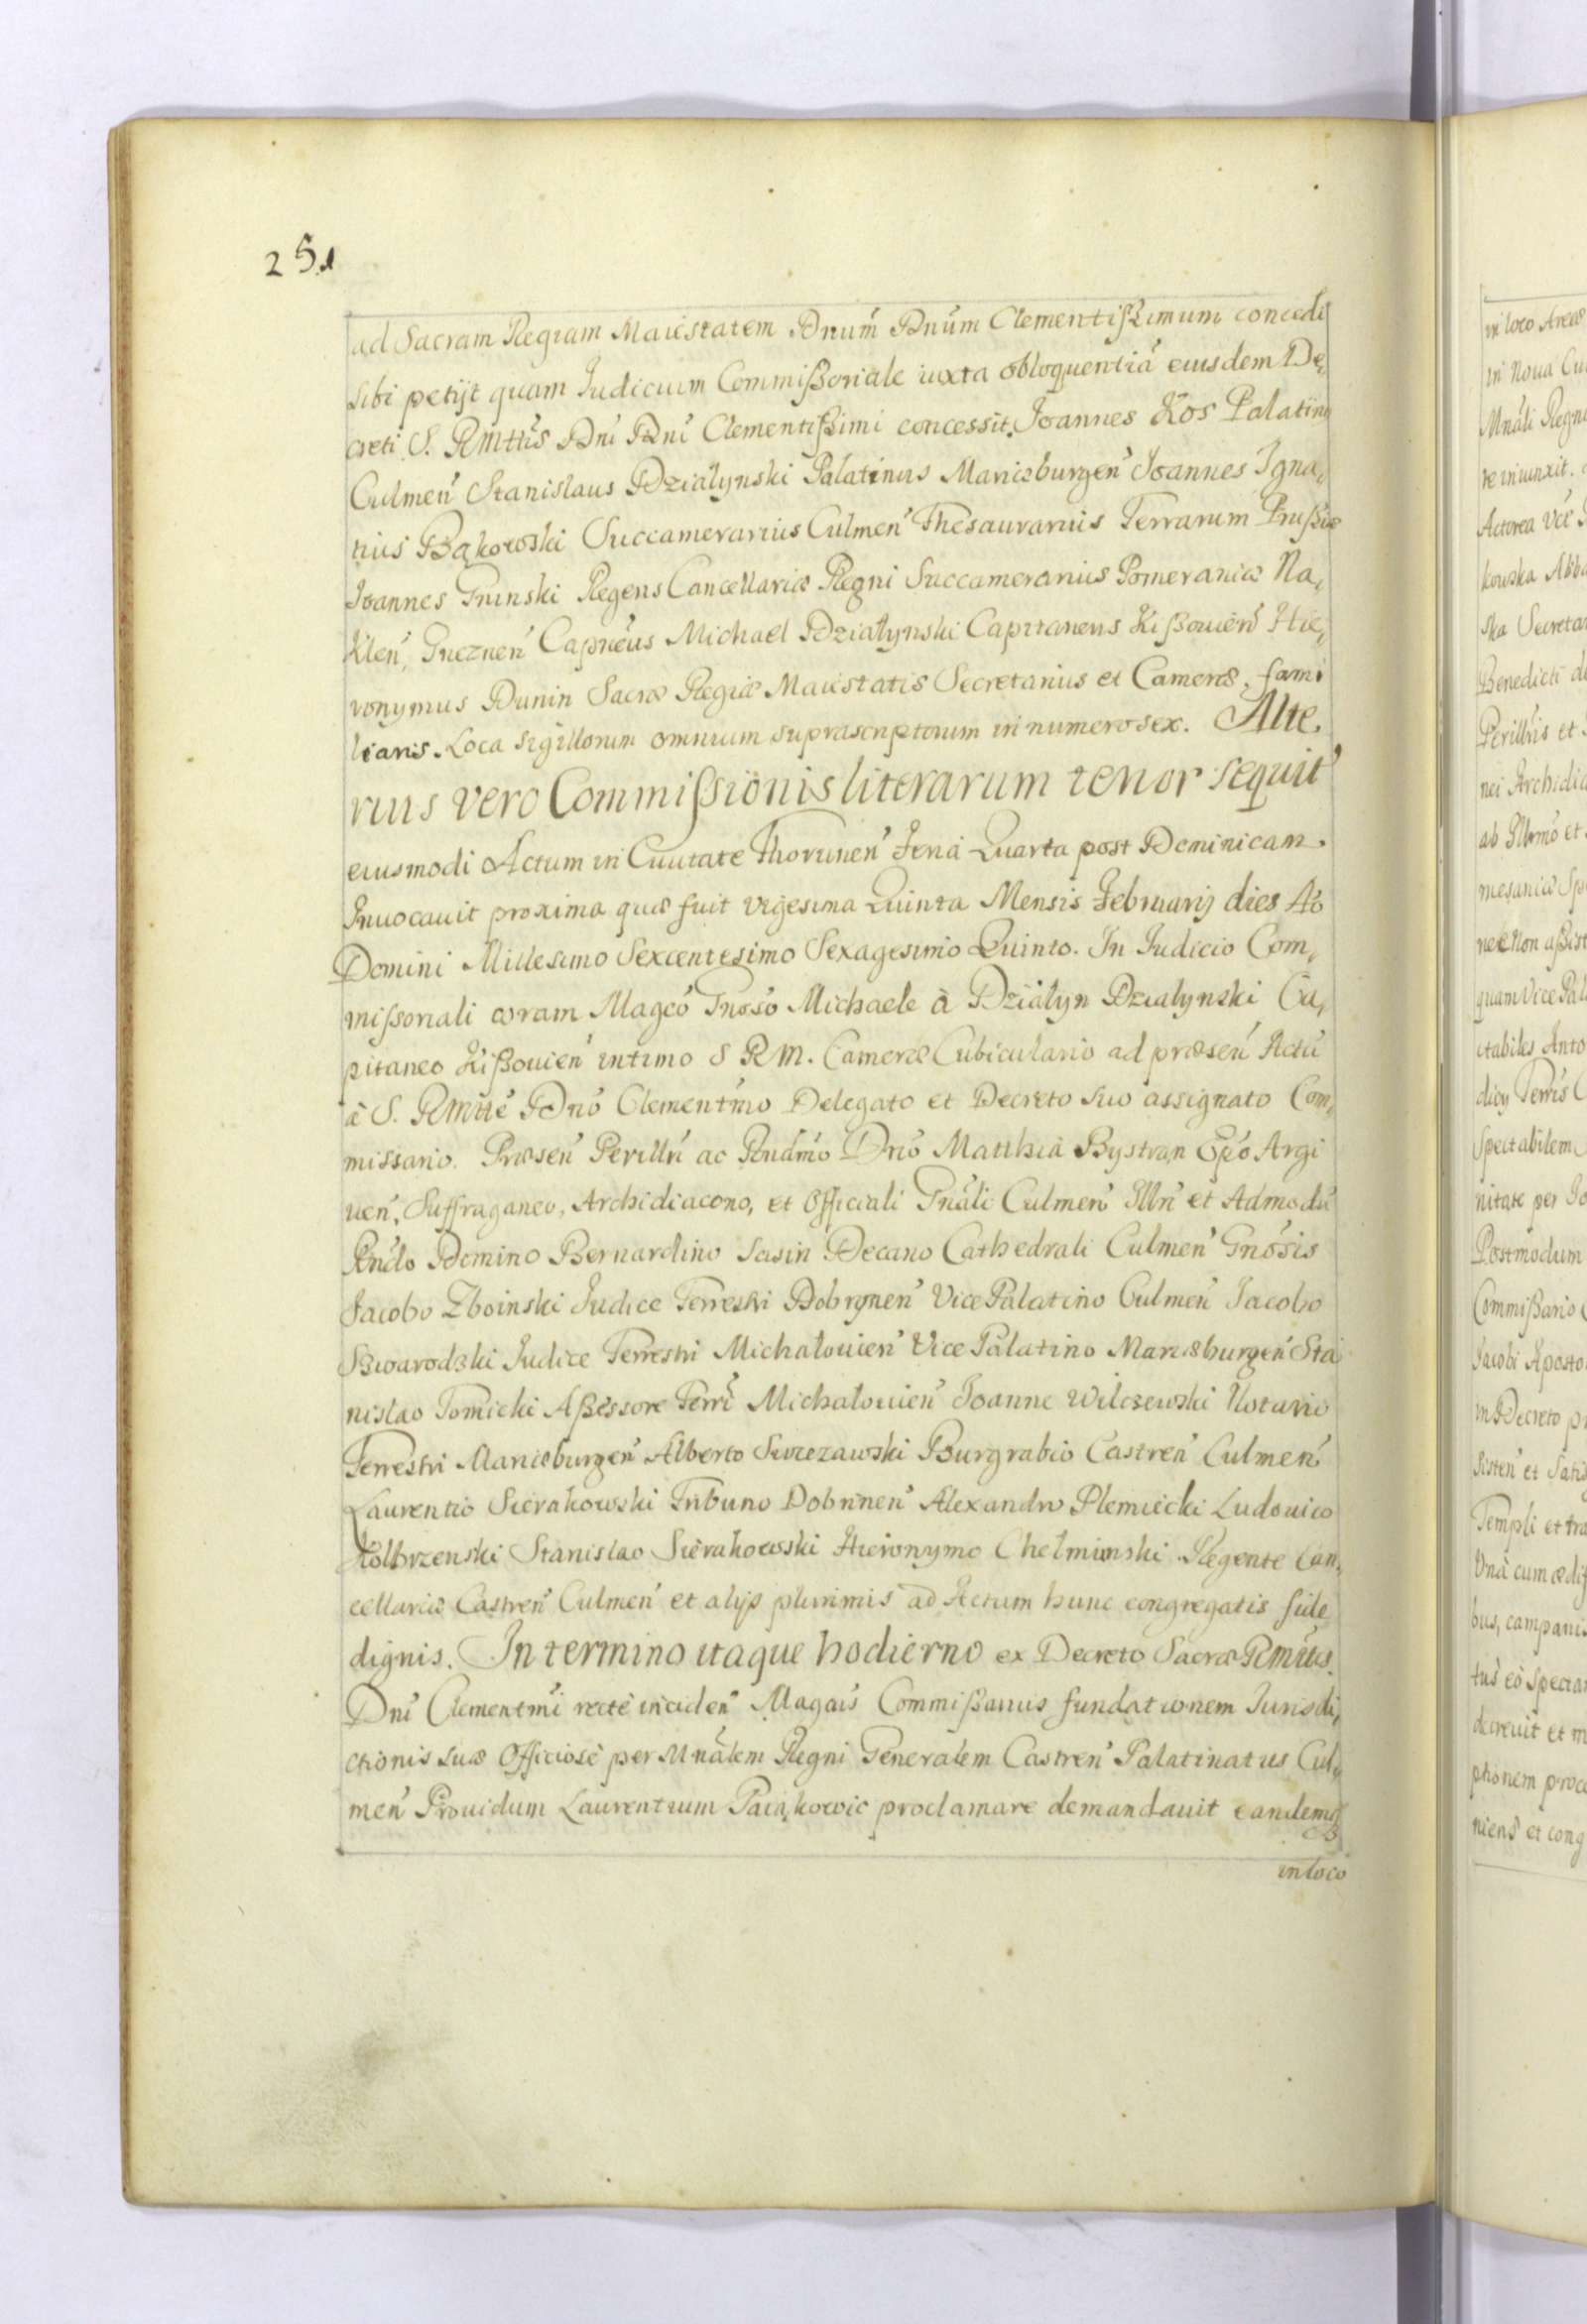 251
ad Sacram Regiam Maiestatem Dnum̄ Dnūm Clementißimum concedi
sibi petijt quam Judicium Commißoriale iuxta obloquentiā eiusdem De,
creti S. RMttis Dni Dni Clementißimi concessit. Joannes Kos Palatinꝰ
Culmen̄ Stanislaus Działynski Palatinus Mariæburgen̄ Joannes Igna,
tius Bąkowski Succamerarius Culmen̄ Thesaurarius Terrarum Prußiæ
Joannes Gninski Regens Cancellariæ Regni Succamerarius Pomeraniæ Na,
klen̄, Gneznen̄ Capnēus Michael Działynski Capitaneus Kißouien̄ Hie,
ronymus Dunin Sacræ Regiæ Maiestatis Secretarius et Cameræ fami
liaris. Loca sigillorum omnium suprascriptorum in numero sex. Alte,
rius vero Commißionis literarum tenor sequit̄
eiusmodi Actum in Ciuitate Thorunen̄ Feria Quarta post Dominicam
Inuocauit proxima quæ fuit vigesima Quinta Mensis Februarij dies Aō
Domini Millesimo Sexcentesimo Sexagesimo Quinto. In Judicio Com,
missoriali coram Magcō Gnoso Michaele à Działyn Działynski Ca,
pitaneo Kißouien̄ intimo S RM. Cameræ Cubiculario ad præsen̄ Actū
à S. RMtte Dnō Clementmo Delegato et Decreto suo assignato Com,
missario. Præsen̄ Perillri ac Rndmo Dnō Matthia Bystran Epō Argi
uen̄, Suffraganeo, Archidiacono, et Officiali Gnāli Culmen̄ Illri et Admodū
Rndo Domino Bernardino Sasin Decano Cathedrali Culmen̄ Gnōsis
Jacobo Zboinski Judice Terrestri Dobrynen̄ Vice Palatino Culmen̄ Jacobo
Szwarodzki Judice Terrestri Michałouien̄ Vice Palatino Mariæburgen̄ Sta
nislao Tomicki Aßessore Terrī Michałouien̄ Joanne Wilczewski Notario
Terrestri Mariæburgen̄ Alberto Swiezawski Burgrabio Castren̄ Culmen̄
Laurentio Sierakowski Tribuno Dobrinen̄ Alexandro Plemiecki Ludouico
Kolbrzenski Stanislao Sierakowski Hieronymo Chelminski Regente Can,
cellariæ Castren̄ Culmen̄ et alijs plurimis ad Actum hunc congregatis fide
dignis. In termino itaque hodierno ex Decreto Sacræ RMttis
Dni Clementmi recte inciden̄ Magcūs Commißarius fundationem Jurisdi,
ctionis suæ Officiosè per Mnālem Regni Generalem Castren̄ Palatinatus Cul,
men̄ Prouidum Laurentium Paiąkowic proclamare demandauit eandemq;
in loco